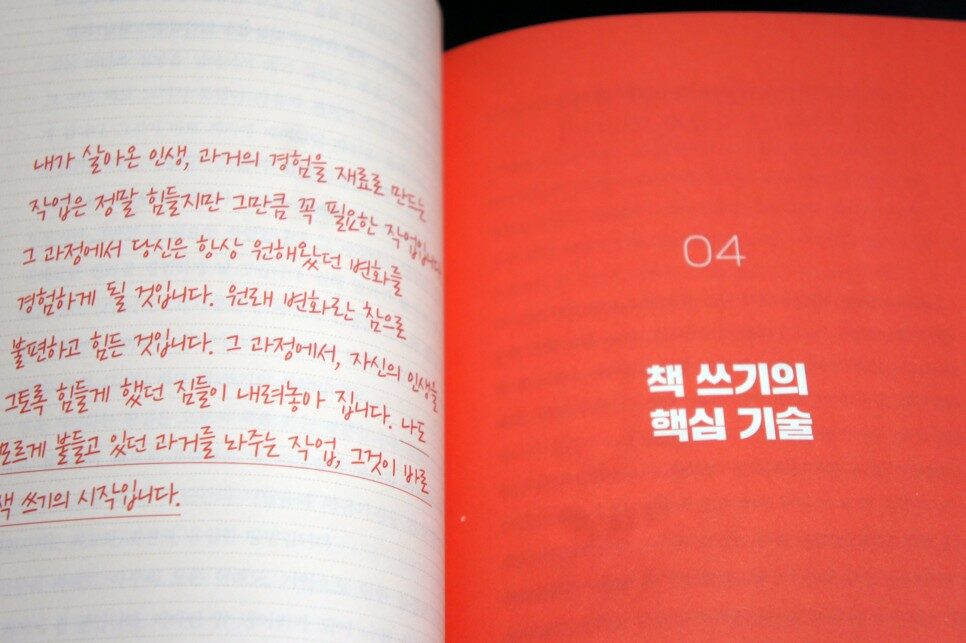 내가 살아온 인생, 과거의 경험을 재료로 만드는
작업은 정말 힘들지만 그만큼 꼭 필요한 작업입니다.
그 과정에서 당신은 항상 원해왔던 변화를
경험하게 될 것입니다. 원래 변화란 참으로
불편하고 힘든 것입니다. 그 과정에서, 자신의 인생을
그토록 힘들게 했던 짐들이 내려놓아 집니다. 나도
모르게 붙들고 있던 과거를 놔주는 작업, 그것이 바로
책 쓰기의 시작입니다.
04
책 쓰기의
핵심 기술